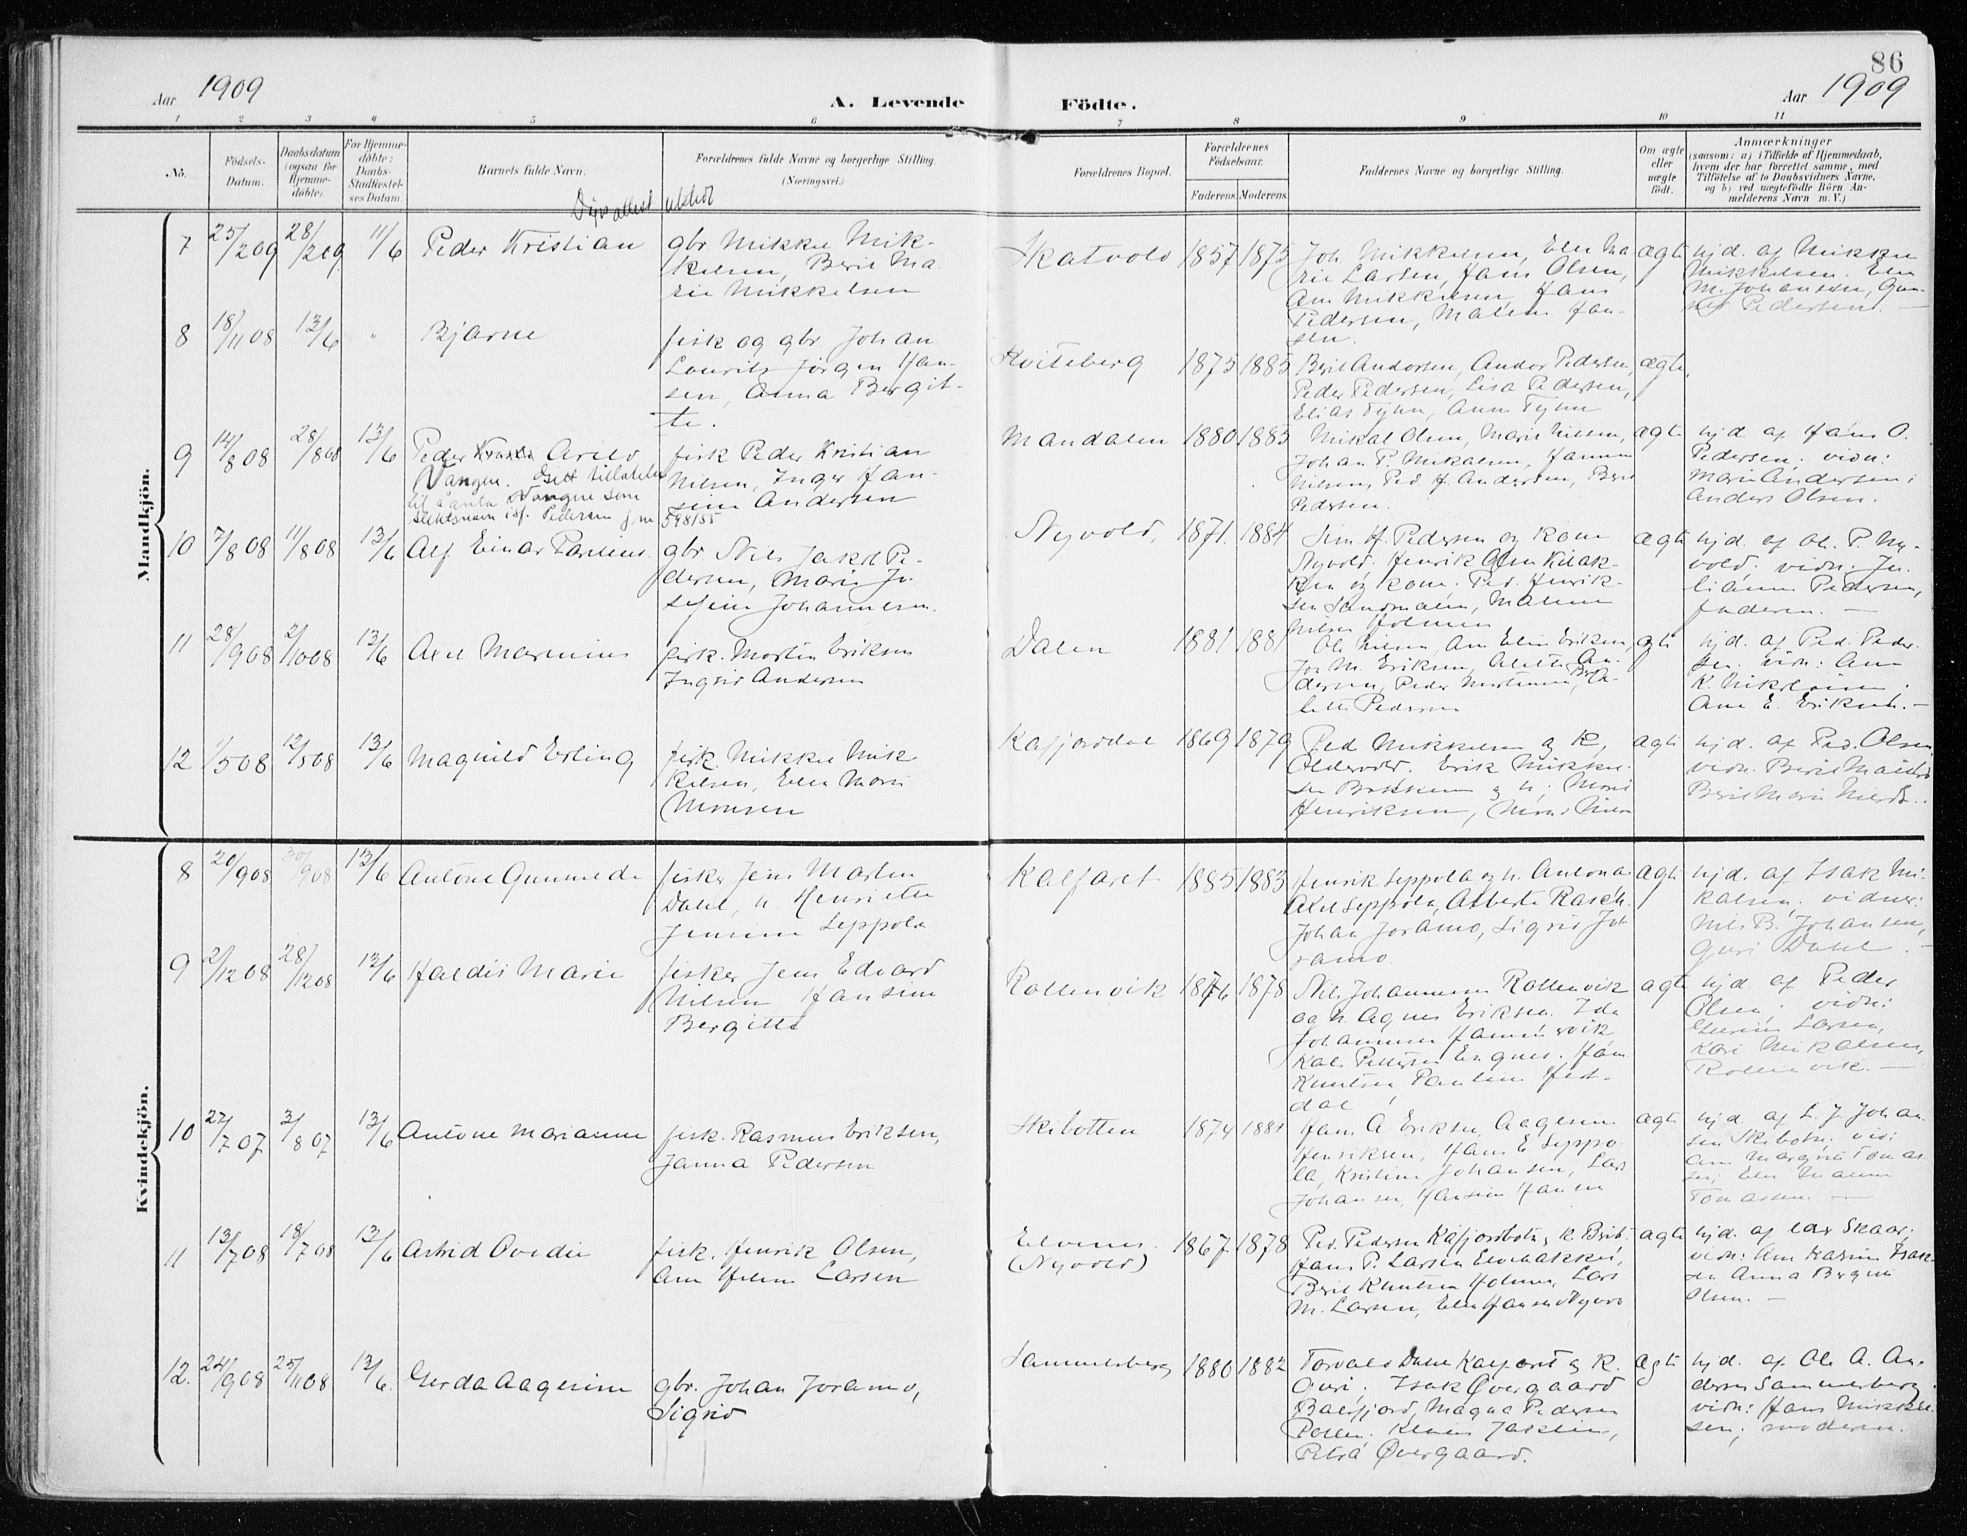 86
Aar 1909
A. Levende Födte.
Aar 1909
1 2 3 4 5 6 7 8 9 10 11
No.
Födsels-
Datum.
Daabsdatum
(ogsaa for
Hjemme-
döbte)
For Hjemme-
döbte:
Daabs-
Stadfæstel-
ses Datum.
Barnets fulde Navn.
Forældrenes fulde Navne og borgerlige Stilling.
(Næringsvei.)
Forældrenes Bopæl.
Forældrenes
Födselsaar.
Faderens Moderens
Faddernes Navne og borgerlige Stilling.
Om ægte
eller
uægte
födt.
Anmærkninger
(saasom: a) i Tilfælde af Hjemmedaab,
hvem der har forrettet samme, med
Tilföielse af to Daabsvidners Navne,
og b) ved uægtefödte Börn An-
melderens Navn m. V.)
Mandkjön.
7 25/2 09 28/2 09 11/6 Peder Kristian
gbr. Mikkel Mik-
kelsen, Berit Ma-
rie Mikkelsen
Skatvold 1857 1875
Joh. Mikkelsen, Elen Ma
rie Larsen, Hans Olsen,
Ane Mikkelsen, Hans
Pedersen, Malene Han-
sen.
ægte
hjd. af Mikkel
Mikkelsen. Elen
M. Johansen,
Pedersen. —
8 18/11 08 13/6 " Bjarne
fisk og gbr. Johan
Laurits Jörgen Han-
sen, Anna Bergit-
te.
Kviteberg 1875 1885
Berit Andersen, Andor Pedersen,
Peder Pedersen, Lisa Pedersen,
Elias Fyhn, Anne Fyhn
ægte
9 14/8 08 28/8 08 13/6 Peder Arild
Vangen. Gitt tillatelse
til å anta Vangen som
slektsnavn isf. Pedersen j.nr 598/55
fisk Peder Kristian
Nilsen, Inger Han-
sine Andersen
Mandalen 1880 1883
Mikal Olsen, Marie Nilsen,
Johan P. Mikalsen, Hanna
Nilsen, Ped. H. Andersen, Berit
Pedersen.
ægte
hjd. af Hans O.
Pedersen. vidn:
Marie Andersen;
Anders Olsen.
10 7/8 08 11/8 08 13/6 Alf Einar Paulius
gbr Nils Jakob Pe-
dersen, Marie Jo-
sefine Johannesen.
Nyvold. 1871 1884
Sim. H. Pedersen og kone
Nyvold. Henrik Olsen Kilak-
ken og kone. Ped. Henrik-
sen Sandmalen, Malene
Nilsen Holmen
ægte
hjd. af Ol. P. Ny-
vold. vidn: Ju-
liane Pedersen,
faderen. —
11 28/9 08 2/10 08 13/6 Axel Marenius
fisk. Martin Eriksen
Ingrid Andersen
Dalen 1881 1881
Ole Nilsen, Ane Elen Eriksen,
Joh. M. Eriksen, An-
dersen, Peder
Pedersen
ægte
hjd. af Ped. Peder-
sen. vidn: Ane
K. Mikkelsen;
Ane E. Eriksen. —
12 1/5 08 12/5 08 13/6 Magnild Erling
fisk. Mikkel Mik
kelsen, Elen Marie
Monsen
Kafjorddal 1869 1879
Ped Mikkelsen og k,
Erik Mikkel-
sen Bakken og h; Marie
Henriksen, Mons Nilsen
ægte
hjd. af Ped. Olsen
vidn. Berit
Berit Marie
Kvindekjön.
8 20/9 08 30/9 08 13/6 Antone Gunnelde
fisker Jens Martin
Dahl, h. Henriette
Jensine Seppola
Kalfaret 1885 1883
Henrik Seppola og h. Antona
Axel Seppola, Alberte Rasch.
Johan Joramo, Sigrid Jo-
ramo.
ægte
hjd. af Isak Mi-
kalsen; vidner:
Nils B. Johansen,
Guri Dahl. —
9 2/12 08 28/12 08 13/6 Haldis Marie
fisker Jens Edvard
Nilsen Hansine
Bergitte
Rollenvik 1876 1878
Nils Johannesen Rollenvik
og h. Agnes Eriksen. Ida
Johannesen
Kal. Pedersen Hans
Knutsen Pauline
dal
ægte
hjd. af Peder
Olsen; vidn:
Larsen,
Kari Mikalsen,
Rollenvik. —
10 27/7 07 3/8 07 13/6 Antone Marianne
fisk. Rasmus Eriksen,
Janna Pedersen
Skibotten 1874 1881
Hans A. Eriksen, Aagesen
Henriksen, Hans E. Seppo-
la, Kristine Johansen, Lars
Johansen, Hansine Hansen
ægte
hjd. af L. J. Johan
sen Skibotn. vid:
Ane Margrit Tomas
sen; Elen Malene
Tomassen. —
11 13/7 08 18/7 08 13/6 Astrid Ovedie
fisk. Henrik Olsen,
Ane Helene Larsen
Elvenes.
(Nyvold)
1867 1878
Ped. Pedersen Kafjordbotn, k. Brit.
Hans P. Larsen Elvebakken,
Berit Knutsen Holmen, Lars
M. Larsen, Elen Hansen Nyvold
ægte
hjd. af Lars Skaar;
vidn: Ane Karine Isak-
sen Anna Bergitte
Olsen. —
12. 24/9 08 25/11 08 13/6. Gerda Aagesine
gbr. Johan Joramo,
Sigrid
Sammersberg 1880 1882
Torvald Dahl Kalfaret og k.
Guri; Isak Övergaard
Balsfjord, Magna Pedersen
Pollen. Jaklin,
Petra Övergaard.
ægte
hjd. af Ole A. An-
dersen Sammersberg
vidn: Hans Mikkel-
sen; moderen.